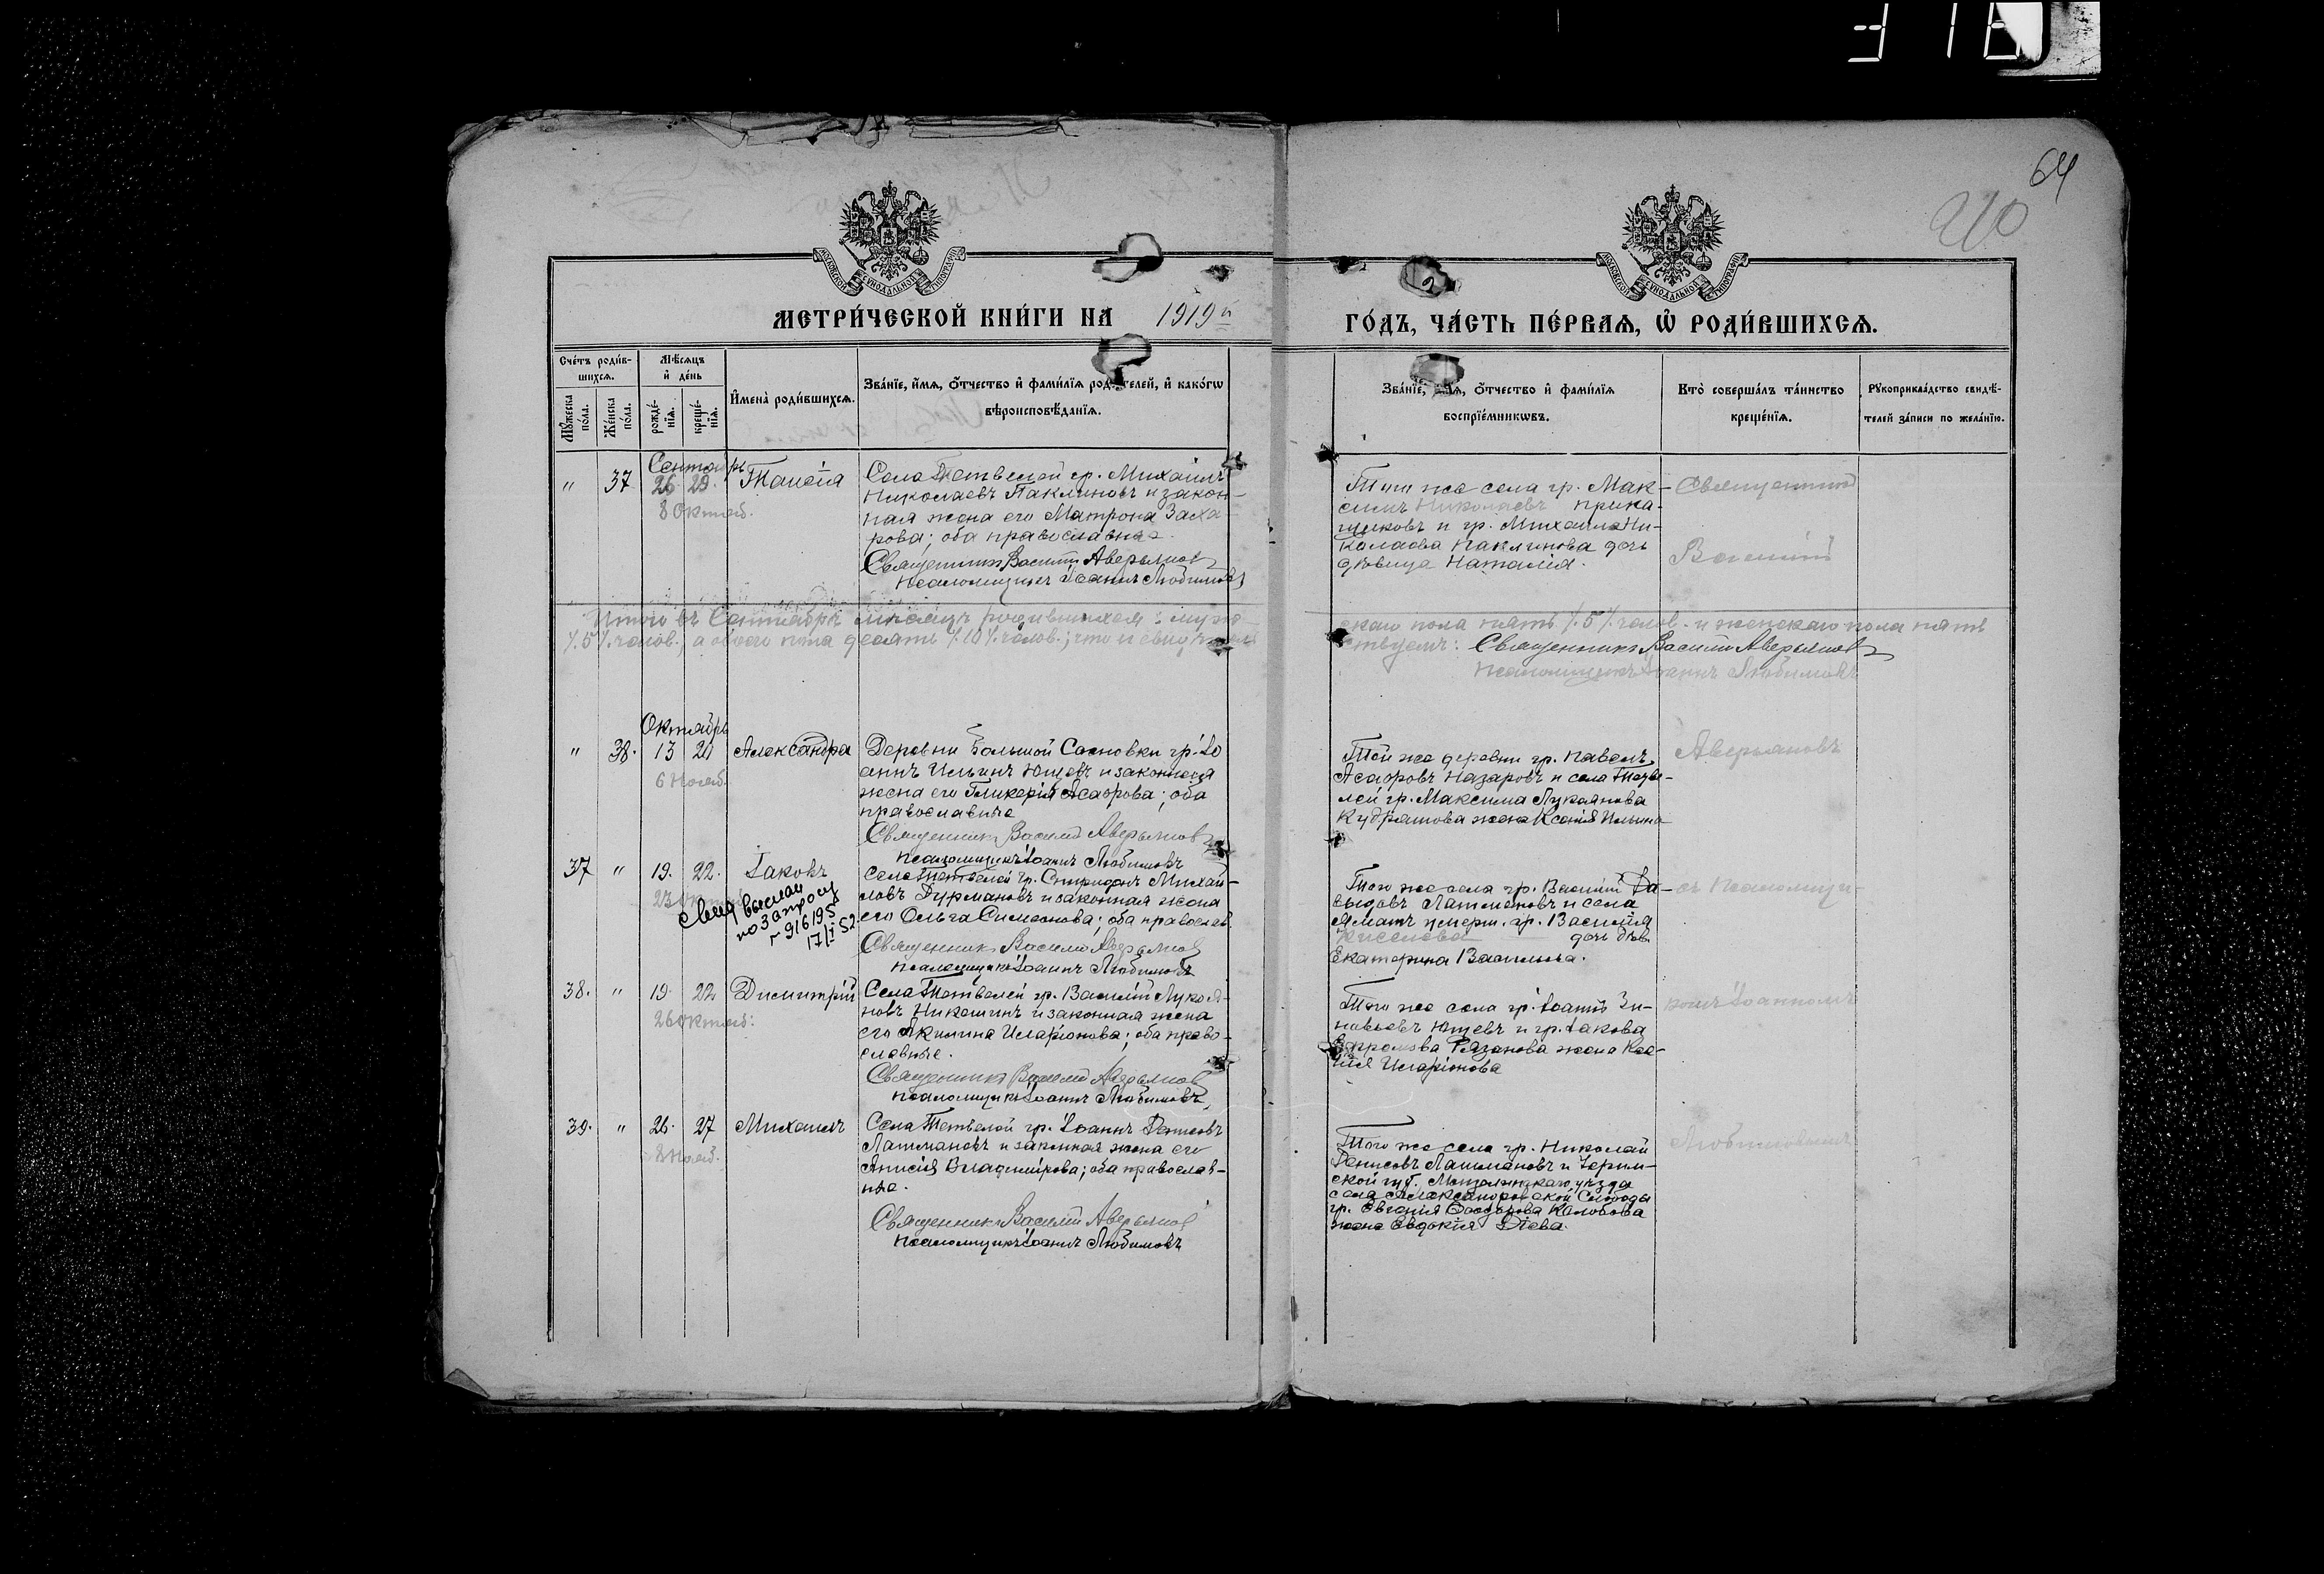 64
210
МОСКОВСКОЙ СѴНОДАЛЬНОЙ ТИПОГРАФІИ
МОСКОВСКОЙ СѴНОДАЛЬНОЙ ТИПОГРАФІИ
МЕТРИ́ЧЕСКОЙ КНИ́ГИ НА 1919й
ГО́ДЪ, ЧА́СТЬ ПЕ́РВАѦ, Ѽ РОДИ́ВШИХСѦ.
Сче́тъ роди́в-
шихсѧ.
Мѣ́сѧцъ
и҆ де́нь
Мꙋ́жеска по́ла.
Же́нска по́ла.
рожде́-нїѧ.
креще́-нїѧ.
И҆мена̀ роди́вшихсѧ.
Зва́нїе, и҆́мѧ, ѻ҆́тчество и҆ фами́лїѧ роди́телей, и҆ како́гѡ
вѣроисповѣ́данїѧ.
Зва́нїе, и҆́мѧ, ѻ҆́тчество и҆ фами́лїѧ
воспрїе́мникѡвъ.
Кто̀ соверша́лъ та́инство
креще́нїѧ.
Рꙋкоприкла́дство свидѣ́-
телей за́писи по жела́нїю.
Сентябрь
" 37 26 29. Таисія
8 Октяб.
Села Тетвелей гр. Михаилъ
Николаевъ Паклиновъ и закон-
ная жена его Матрона Заха-
рова; оба православные.
Священникъ Василій Аверьянов
Псаломщикъ Іоаннъ Любимовъ
Того же села гр. Мак-
симъ Николаевъ Прика-
щиковъ и гр. Михаила Ни-
колаева Паклинова дочь
дѣвица Наталія.
Священникъ
Василій
Итого въ Сентябрѣ мѣсяцѣ родившихся: муж-
скаго пола пять /.5/. челов. и женскаго пола пять
/.5/. челов., а обоего пола десять /.10/. челов.; что и свидѣтель-
ствуемъ: Священникъ Василій Аверьянов
Псаломщикъ Іоаннъ Любимовъ
Октябрь
" 38. 13 20 Александра
6 Нояб.
Деревни Большой Сосновки гр. Іо
аннъ Ильинъ Ющевъ и законная
жена его Гликерія Асафова; оба
православные
Священникъ Василій Аверьянов
Псаломщикъ Іоаннъ Любимовъ
Той же деревни гр. Павелъ
Назаровъ и села Тетве-
лей гр. Максима Лукоянова
жена Ксенія Ильина
Аверьяновъ
37 " 19. 22. Іаковъ
23 Октяб.
выслан
по запросу
г 916195
17/I 52.
Села Тетвелей гр. Спиридонъ Михай-
ловъ Дурмановъ и законная жена
его Ольга Симеонова; оба православ.
Священникъ Василій Аверьянов
Псаломщикъ Іоаннъ Любимовъ
Того же села гр. Василій Да-
выдовъ Лашмановъ и села
умерш. гр. Василія
Киселева дочь дѣв.
Екатерина Васильева.
съ Псаломщи-
38. " 19 22 Димитрій
26 Октяб:
Села Тетвелей гр. Василій Лукоя-
новъ Никошинъ и законная жена
его Акилина Иларіонова; оба право-
славные.
Священникъ Василій Аверьянов
Псаломщикъ Іоаннъ Любимовъ
Того же села гр. Іоаннъ Зи-
новьевъ Ющевъ и гр. Іакова
Ефремова Рязанова жена Ксе-
нія Иларіонова
комъ Іоанномъ
39. " 26. 27 Михаилъ
8 Нояб.
Села Тетвелей гр. Іоаннъ Денисовъ
Лашмановъ и законная жена его
Анисія Владимірова; оба православ-
ные.
Священникъ Василій Аверьянов
Псаломщикъ Іоаннъ Любимовъ
Того же села гр. Николай
Денисовъ Лашмановъ и
ской губ. Мензелинскаго уѣзда
села Александровской Слободы
гр. Евгенія Ѳеодорова Колобова
жена Евдокія
Любимовымъ